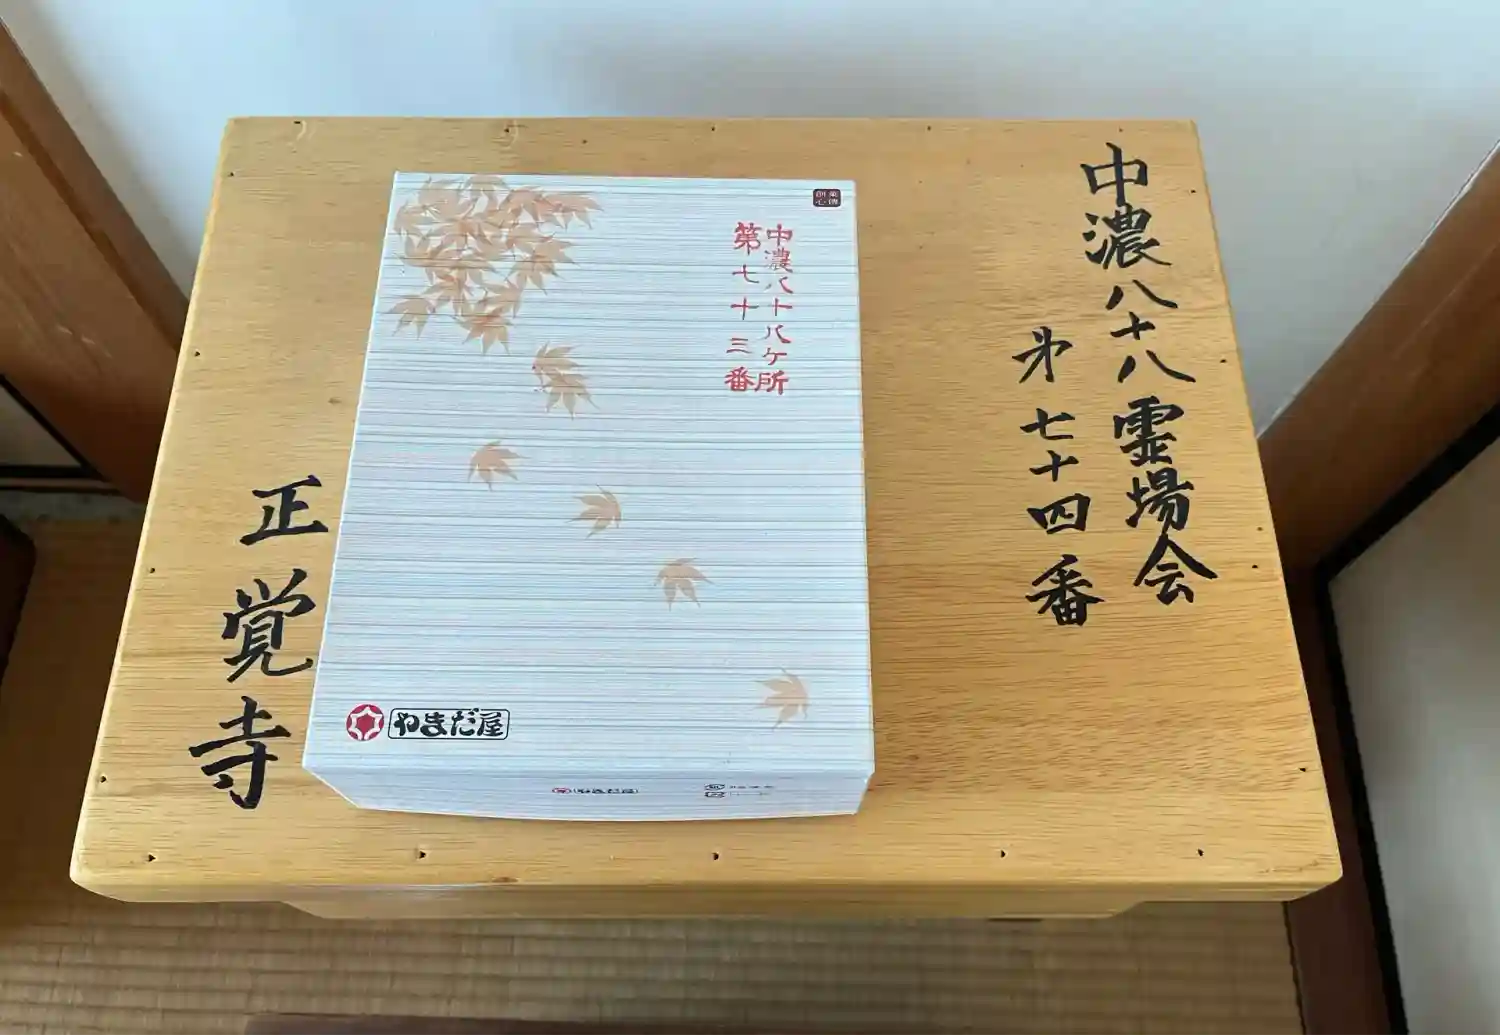 中濃八十八霊場会
第七十四番
正覚寺
中濃八十八ヶ所
第七十三番
やまだ屋
やまだ屋